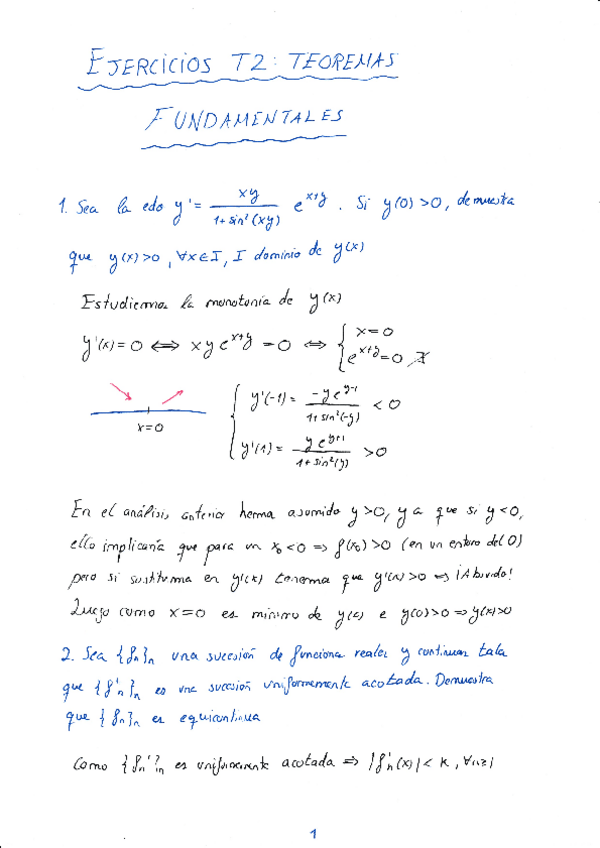 EJERCICIOS T2: TEOREMAS
FUNDAMENTALES
1. Sea la edo y' = xy / (1 + sin²(xy)) e^(x+y). Si y(0) > 0, demuestra
que y(x) > 0, ∀x ∈ I, I dominio de y(x)
Estudiemos la monotonía de y(x)
y'(x) = 0 ⟺ x y e^(x+y) = 0 ⟺ { x = 0
e^(x+y) = 0 ∄
x=0
y'(-1) = -y e^(y-1) / (1 + sin²(-y)) < 0
y'(1) = y e^(y+1) / (1 + sin²(y)) > 0
En el análisis anterior hemos asumido y > 0, ya que si y < 0,
ello implicaría que para un x₀ < 0 ⇒ f(x₀) > 0 (en un entorno del 0)
pero si sustituimos en y'(x) tenemos que y'(x) > 0 ⇒ ¡Absurdo!
Luego como x = 0 es mínimo de y(x) e y(0) > 0 ⇒ y(x) > 0
2. Sea {fn}n una sucesión de funciones reales y continuas tales
que {f'n}n es una sucesión uniformemente acotada. Demuestra
que {fn}n es equicontinua
Como {fn'}n es uniformemente acotada ⇒ |f'n(x)| < K, ∀n≥1
1